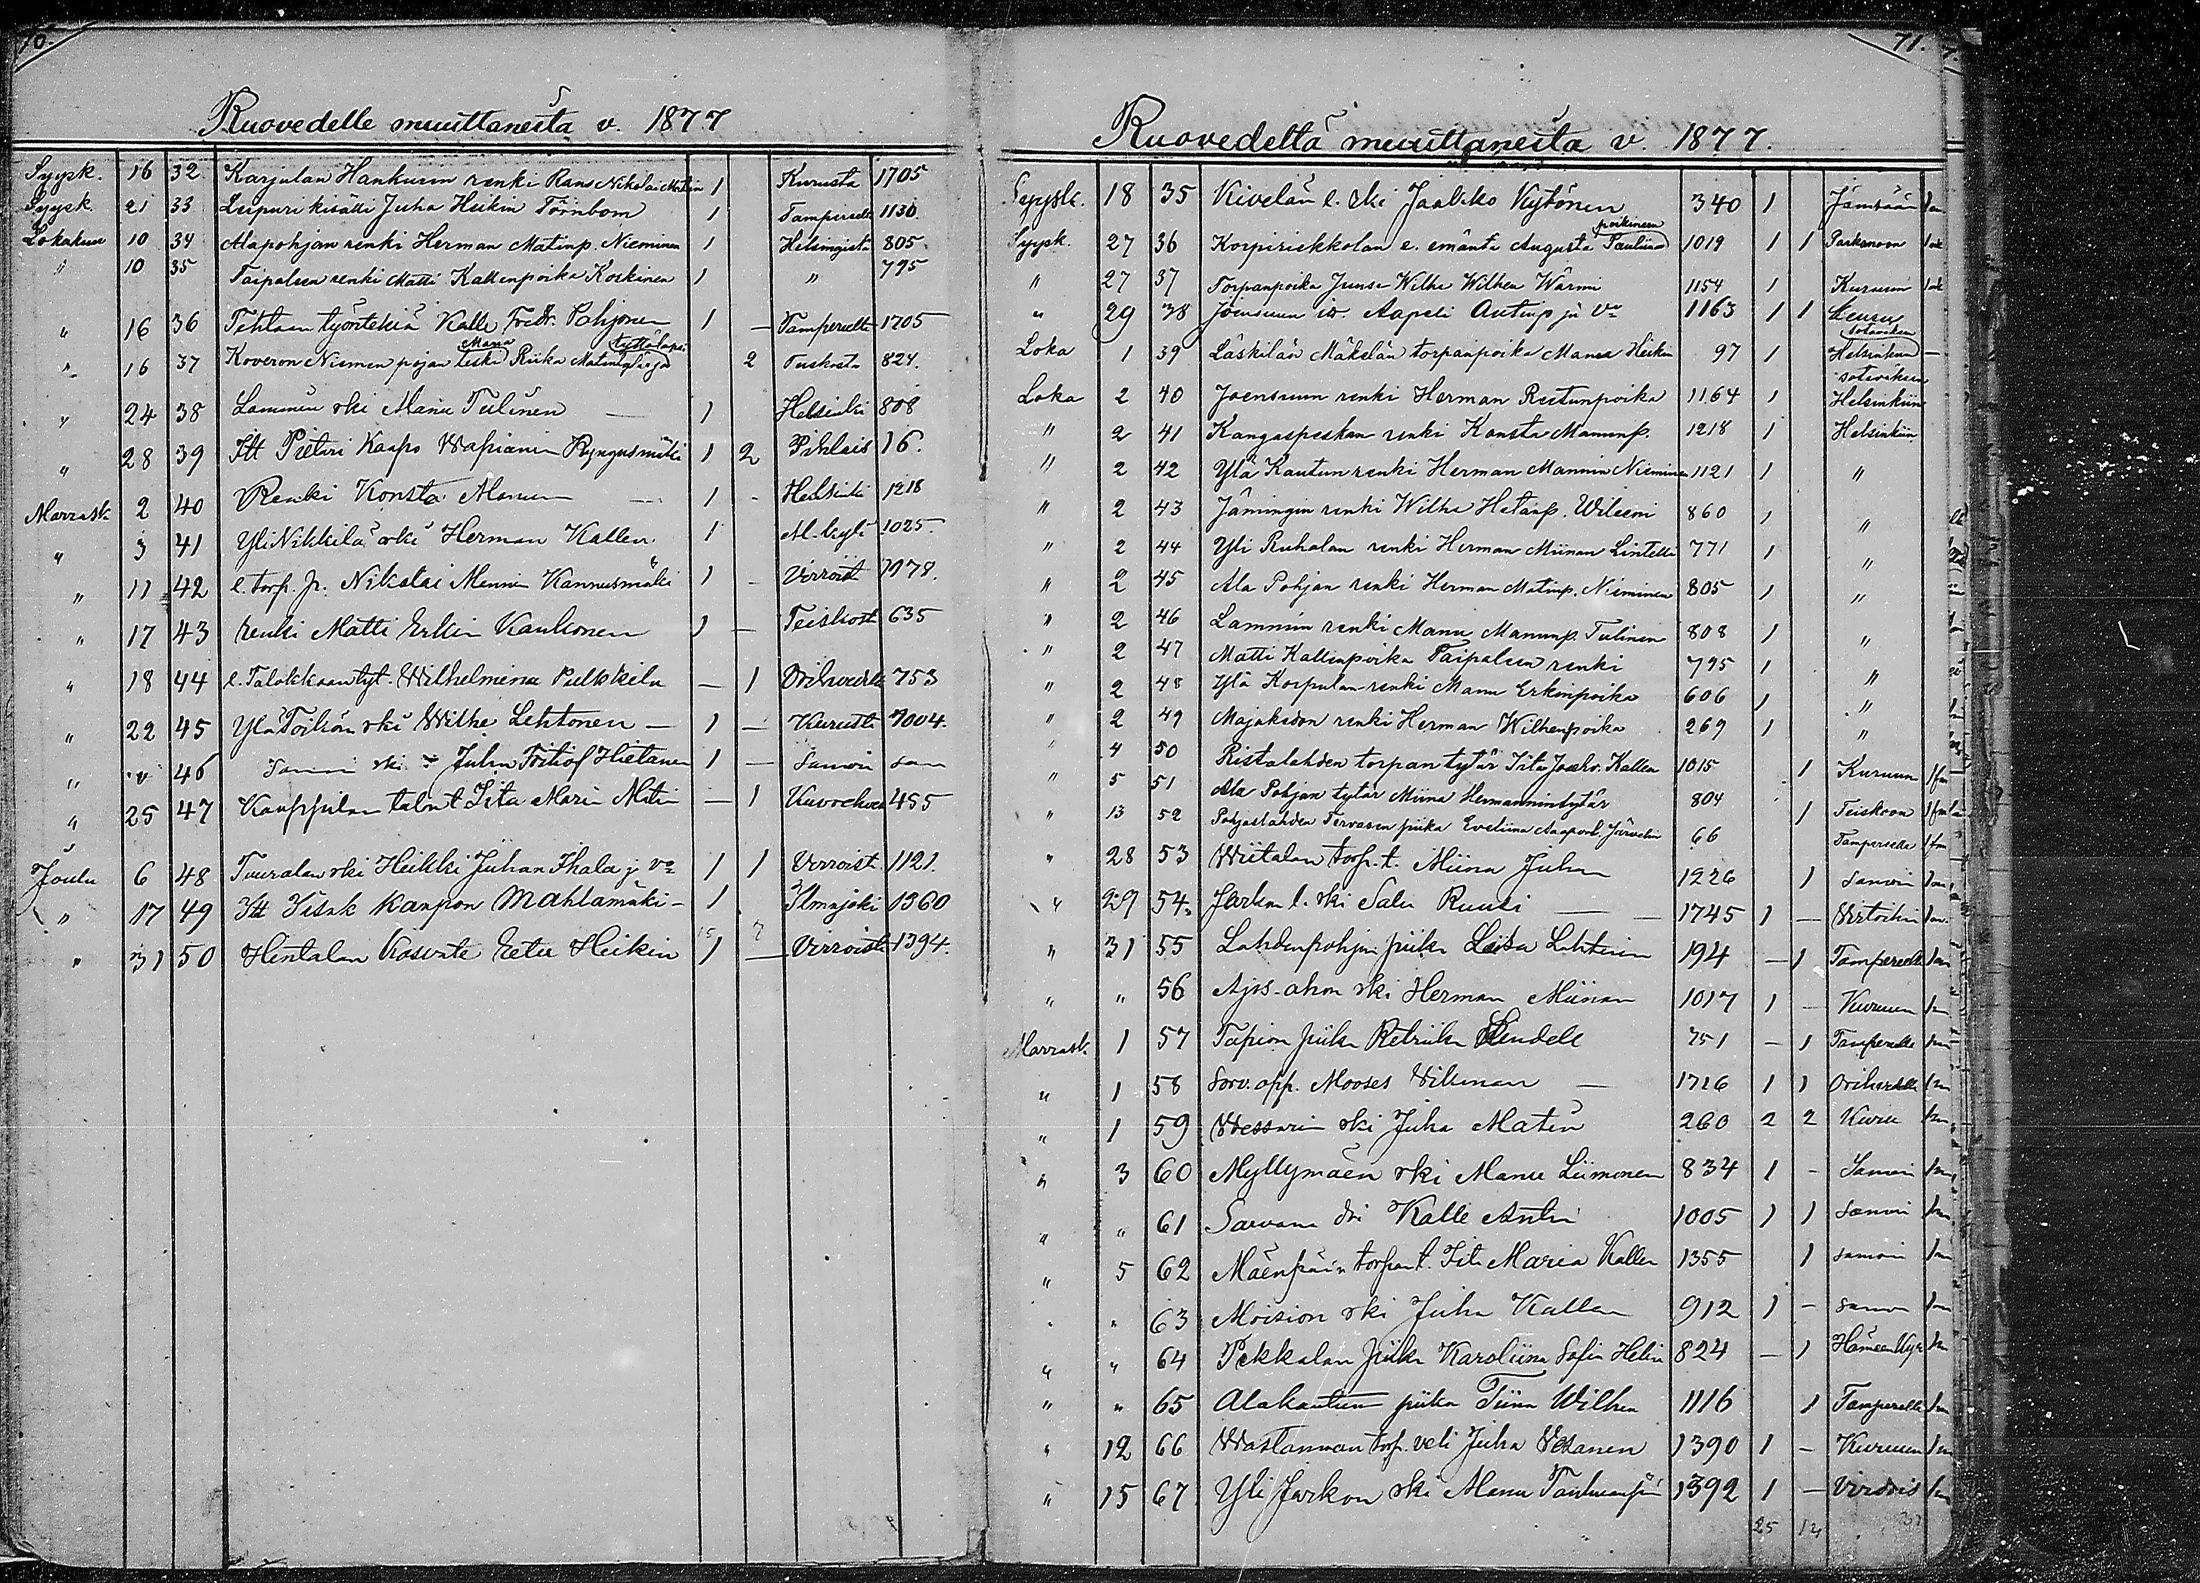 70.
Ruovedelle muuttaneita v. 1877
Syysk. 16 32 Karjulan Hankurin renki Rans Nikolai Matin 1 Kurusta 1705
Syysk. 21 33 Leipuri kisälli Juha Heikin Törnbom 1 Tampereelta 1130
Lokakuu 10 34 Alapohjan renki Herman Matinp. Nieminen 1 Helsingistä 805
" 10 35 Taipaleen renki Matti Kallenpoika Koskinen 1 " 795
" 16 36 Tehtaan työntekiä Kalle Fredr. Pohjonen 1 — Tampereelta 1705
Maria tyttölapsi
" 16 37 Koveron Niemen pojan leski Riika Matint. ja 2 824.
" 24 38 Lammin rki Manu Tulinen — 1 Helsinki 808
" 28 39 Itt Pietari Kaapo Ryngysmäki 1 2 Pihlais 16.
Marrask 2 40 Renki Konsta Manun — 1 - Helsinki 1218
" 3 41 Yli Nikkilä rki Herman Kallen 1 1025
" 11 42 e. torp. p. Nikolai Mennin Kannusmäki 1 - Virroist 1078.
" 17 43 renki Matti Erkin Kaukonen 1 — Teiskost 635
" 18 44 e. Talokkaan tyt. Wilhelmina Pulkkila — 1 Orihvedelt 753
" 22 45 Ylä Toikon rki Wilhe Lehtonen — 1 — Kurust 1004.
" " 46 Samoin rki Juhn Fritiof Hietanen 1 — Samoin sam
" 25 47 Kauppilan Iita Maria Matin — 1 455
Joulu 6 48 Tuuralan rki Heikki Juhan Ihala j. vo 1 1 Virroist. 1121.
" 17 49 Itt Iisak Kaapon Mahlamäki — 1 Ilmajoki 1360
" 31 50 Hintalan Kasvate Eetu Heikin 1 — Virroista 1394.
15 7
71.
Ruovedeltä muuttaneita v 1877.
Syysk. 18 35 Kivelän e. rki Jaakko Kytönen 340 1 Jämsään
poikineen
Syysk. 27 36 Korpiriekkolan e. emäntä Augusta Pauliina 1019 1 1 Parkanoon
" 27 37 Torpanpoika Junse Wilhe Wilhen Wärmi 1154 1 Kuruun
" 29 38 Joensuun is. Aapeli Antinp ja Vo 1163 1 1 Keuru
sotaväkeen
Loka 1 39 Läskilän Mäkelän torpanpoika Manea Heikin 97 1 Helsinkiin —
sotaväkeen
Loka 2 40 Joensuun renki Herman Ristunpoika 1164 1 Helsinkiin
" 2 41 Kangaspeskan renki Konsta Manunp. 1218 1 Helsinkiin
" 2 42 Ylä Kautun renki Herman Mannun Nieminen 1121 1 "
" 2 43 Jämingin renki Wilhe Hetanp. Wileeni 860 1 "
" 2 44 Yli Ruhalan renki Herman Miinan Lintelli 771 1 "
" 2 45 Ala Pohjan renki Herman Matinp. Nieminen 805 1 "
" 2 46 Lammin renki Manu Manunp. Tulinen 808 1 "
" 2 47 Matti Kallenpoika Taipaleen renki 795 1 "
" 2 48 Ylä Korpulan renki Manu Erkinpoika 606 1 "
" 2 49 Majakedon renki Herman Wilhenpoika 269 1 "
" 4 50 Ristalahden torpan tytär Iita Kallen 1015 1 Kuruun
" 5 51 Ala Pohjan tytär Miina Hermannintytär 804 1 Teiskoon
" 13 52 Pohjaslahden Tervasen piika Eveliina Järvelin 66 Tampereelle
" 28 53 Wiitalan torp. t. Miina Juhan 1226 1 Samoin
" 29 54 Jarkon l. rki Salu Ruusi — 1745 1 — Virtoihin
" 31 55 Lahdenpohjan piika Liisa Lehtinen 194 — 1 Tampereelle
" " 56 Ajos-ahon rki Herman Miinan 1017 1 — Kuruun
Marrask. 1 57 Tapion piika Retriika Lindell 751 — 1 Tampereelle
" 1 58 Sorv. opp. Mooses Wikman — 1716 1 1 Orihvedelle
" 1 59 Wessarin rki Juha Matin 260 2 2 Kuru
" 3 60 Myllymäen rki Manu Liimonen 834 1 - Samoin
" " 61 Sarvana Kalle Antin 1005 1 1 Samoin
" 5 62 Mäenpään torpan t. Iita Maria Kallen 1355 1 samoin
" " 63 Moision rki Juha Kallen 912 1 - samoin
" " 64 Pekkalan piika Karoliina Sofia Helin 824 — 1 Hämeen Kyrö
" " 65 Alakautun piika Tiina Wilhen 1116 1 Tampereelle
" 12 66 Wastamaan torp. veli Juha Vesanen 1390 1 - Kuruun
" 15 67 Yli Jarkon rki Manu 1392 1 — Virdois
25 14